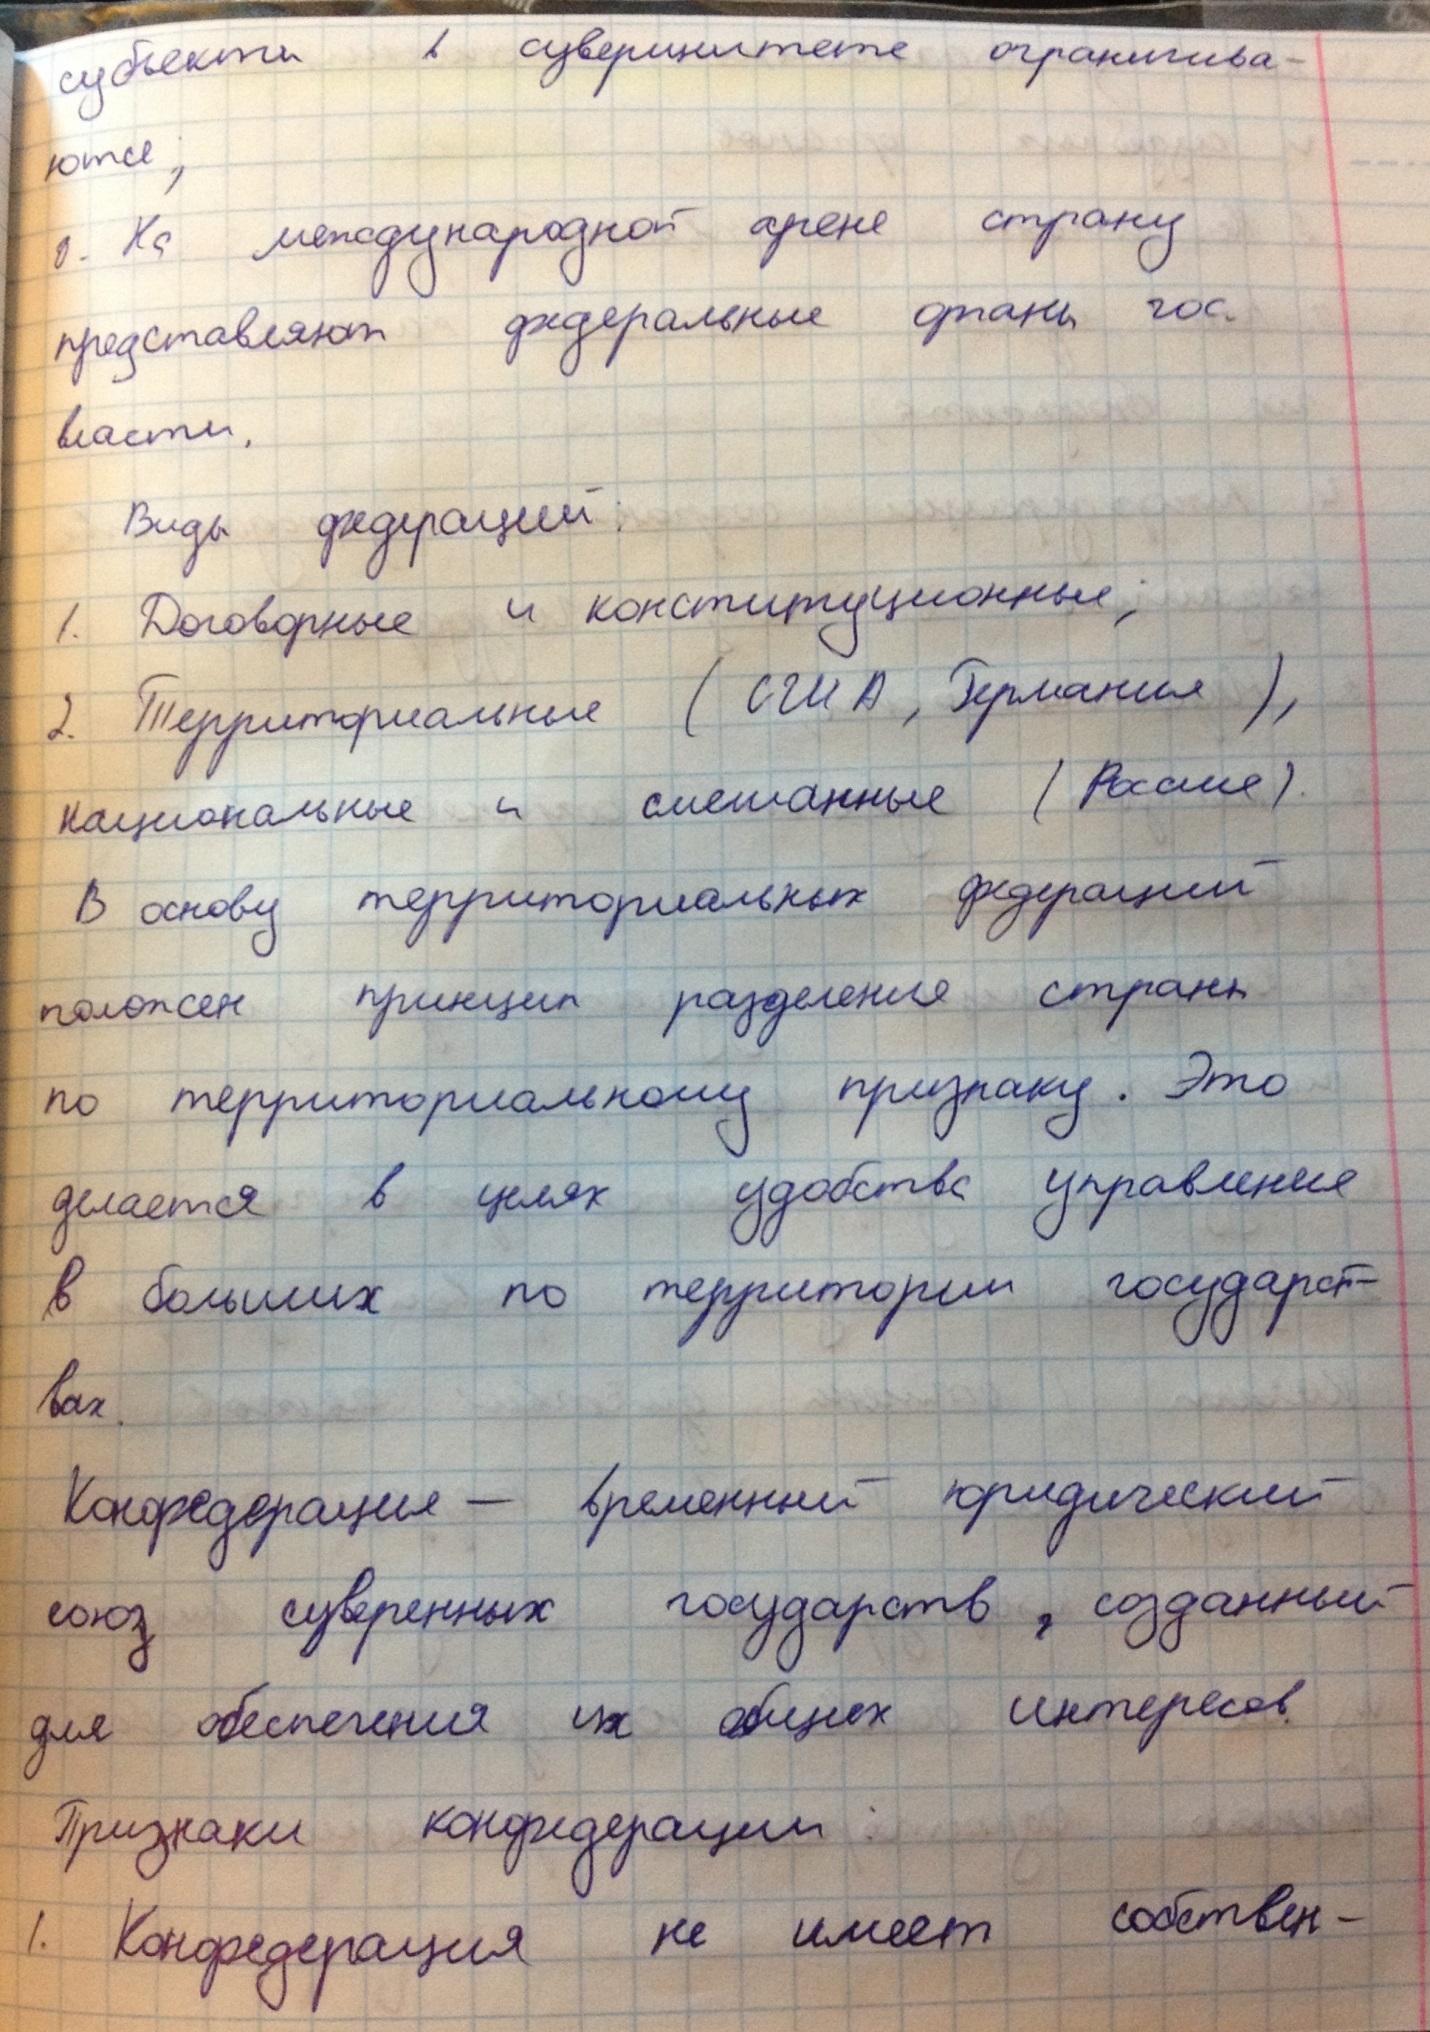 субъекты в суверинитете ограничива-
ются;
На международной арене страну
представляют федеральные органы гос.
власти.
Виды федераций:
1. Договорные и конституционные;
2. Территориальные (США, Германия),
национальные и смешанные (Россия).
В основу территориальных федераций
положен принцип разделения страны
по территориальному признаку. Это
делается в целях удобства управления
в больших по территории государст-
вах.
Конфедерация — временный юридический
союз суверенных государств, созданный
для обеспечения их общих интересов.
Признаки конфедерации:
1. Конфедерация не имеет собствен-